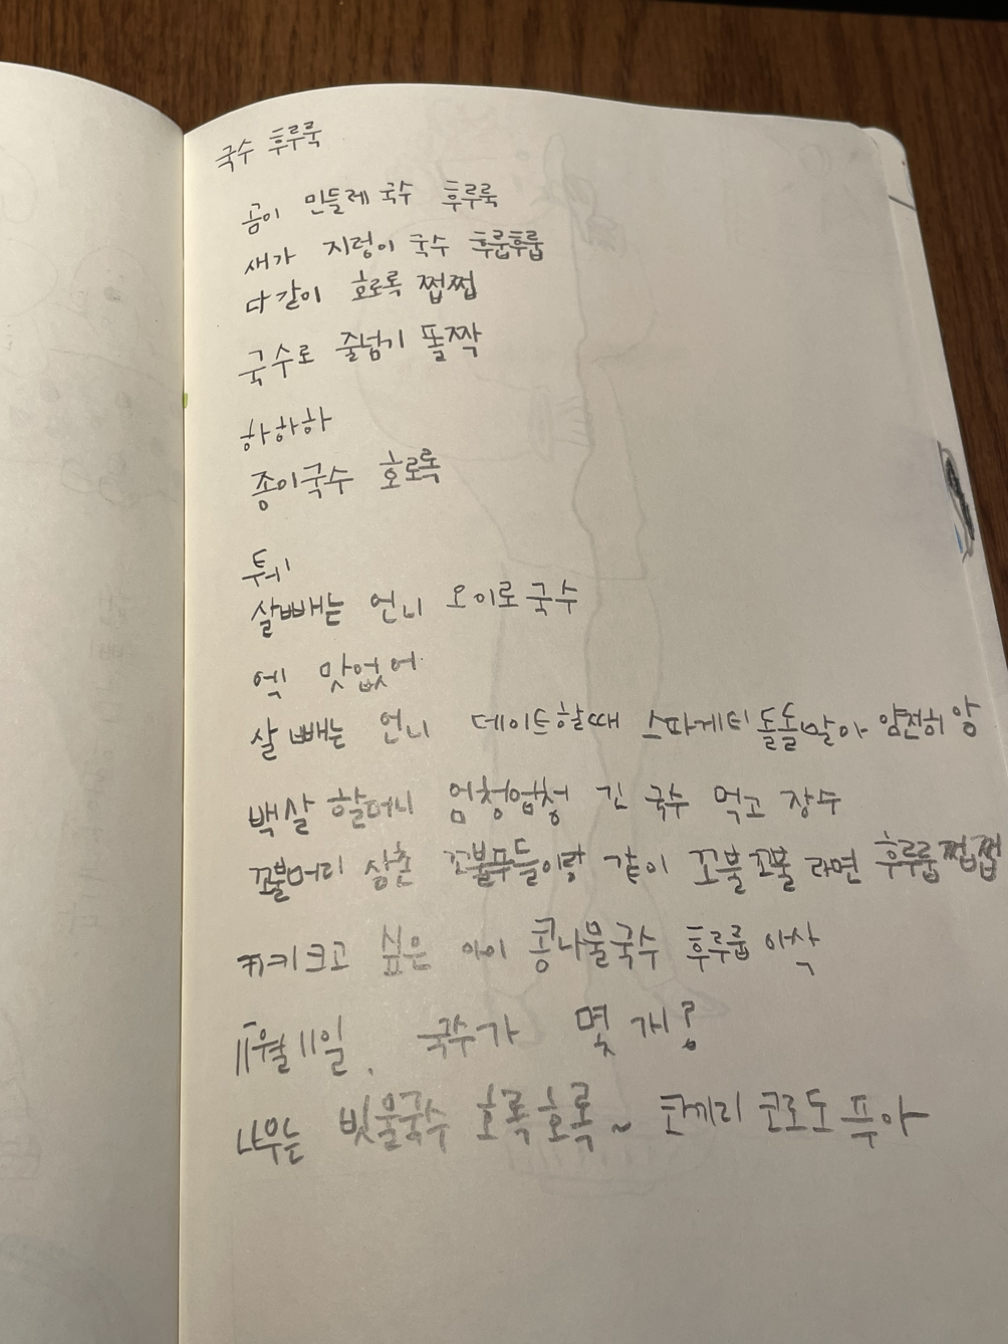 국수 후루룩
곰이 민들레 국수 후루룩
새가 지렁이 국수 후룹후룹
다같이 호로록 쩝쩝
국수로 줄넘기 폴짝
하하하
종이국수 호로록
퉤
살빼는 언니 오이로 국수
엑 맛없어
살 빼는 언니 데이트할때 스파게티 돌돌말아 얌전히 앙
백살 할머니 엄청엄청 긴 국수 먹고 장수
꼬불머리 삼촌 꼬불푸들이랑 같이 꼬불꼬불 라면 후루룹쩝쩝
키키크고 싶은 아이 콩나물국수 후루룹 아삭
11월 11일. 국수가 몇 개?
나무는 빗물국수 호록호록~ 코끼리 코로도 푸아